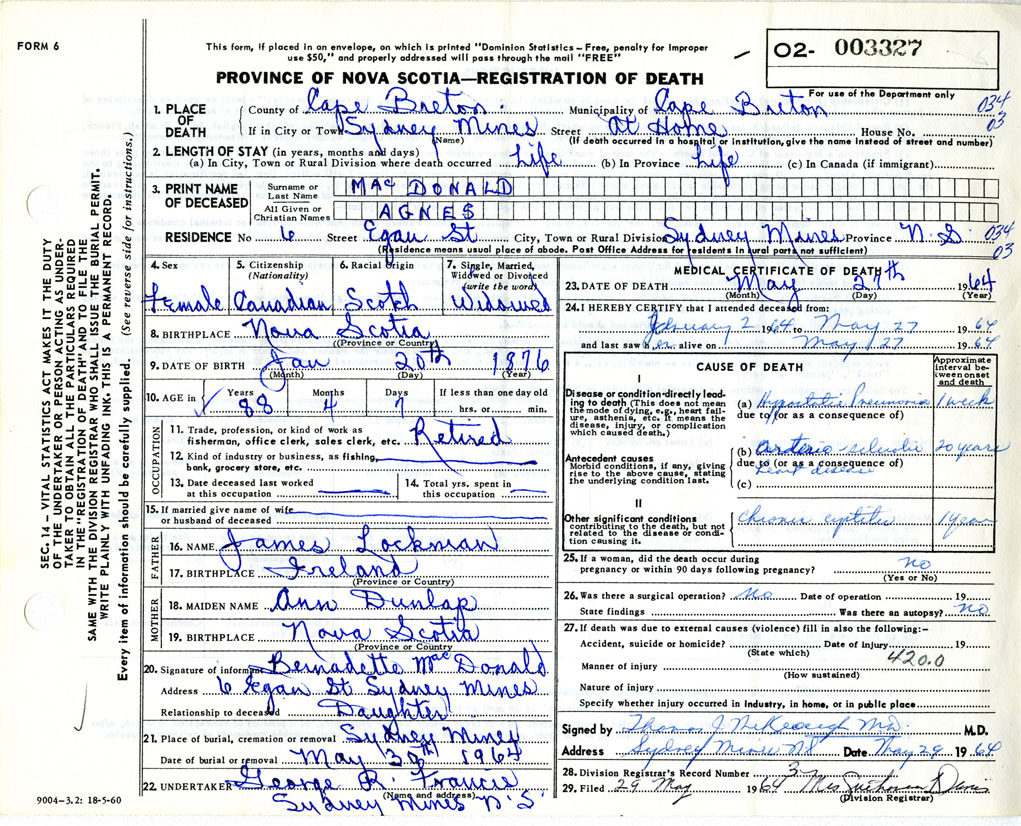 FORM 6
This form, if placed in an envelope, on which is printed "Dominion Statistics – Free, penalty for improper
use $50," and properly addressed will pass through the mail "FREE"
O2- 003327
For use of the Department only
PROVINCE OF NOVA SCOTIA—REGISTRATION OF DEATH
1. PLACE OF DEATH County of Cape Breton. Municipality of Cape Breton 034
If in City or Town Sydney Mines Street At Home House No. 03
(Name) (If death occurred in a hospital or institution, give the name instead of street and number)
2. LENGTH OF STAY (in years, months and days)
(a) In City, Town or Rural Division where death occurred Life (b) In Province Life (c) In Canada (if immigrant)
3. PRINT NAME OF DECEASED Surname or Last Name MAC DONALD
All Given or Christian Names AGNES
RESIDENCE No 6 Street Egan St City, Town or Rural Division Sydney Mines Province N.S. 034
(Residence means usual place of abode. Post Office Address for residents in rural parts not sufficient) 03
4. Sex 5. Citizenship (Nationality) 6. Racial Origin 7. Single, Married, Widowed or Divorced (write the word)
Female Canadian Scotch Widowed
8. BIRTHPLACE Nova Scotia
(Province or Country)
9. DATE OF BIRTH Jan 20th 1876
(Month) (Day) (Year)
10. AGE in Years Months Days If less than one day old
88 4 7 hrs. or min.
OCCUPATION
11. Trade, profession, or kind of work as
fisherman, office clerk, sales clerk, etc. Retired
12. Kind of industry or business, as fishing,
bank, grocery store, etc.
13. Date deceased last worked
at this occupation
14. Total yrs. spent in
this occupation
15. If married give name of wife
or husband of deceased
FATHER
16. NAME James Lockman
17. BIRTHPLACE Ireland
(Province or Country)
MOTHER
18. MAIDEN NAME Ann Dunlap
19. BIRTHPLACE Nova Scotia
(Province or Country)
20. Signature of informant Bernadette Mac Donald
Address 6 Egan St Sydney Mines
Relationship to deceased Daughter
21. Place of burial, cremation or removal Sydney Mines
Date of burial or removal May 30th 1964
22. UNDERTAKER George R. Francis
(Name and address)
Sydney Mines N.S.
MEDICAL CERTIFICATE OF DEATH
23. DATE OF DEATH May 27th 1964
(Month) (Day) (Year)
24. I HEREBY CERTIFY that I attended deceased from:
February 2 1964 to May 27 1964
and last saw her alive on May 27 1964
CAUSE OF DEATH
Approximate interval between onset and death
I
Disease or condition directly leading to death (This does not mean the mode of dying, e.g., heart failure, asthenia, etc. It means the disease, injury, or complication which caused death.)
(a) Hypostatic Pneumonia 1 week
due to (or as a consequence of)
Antecedent causes
Morbid conditions, if any, giving rise to the above cause, stating the underlying condition last.
(b) Arterio-sclerotic 20 years
due to (or as a consequence of)
heart disease
(c)
II
Other significant conditions
contributing to the death, but not related to the disease or condition causing it.
Chronic cystitis 1 year
25. If a woman, did the death occur during
pregnancy or within 90 days following pregnancy? no
(Yes or No)
26. Was there a surgical operation? No Date of operation 19
State findings Was there an autopsy? no
27. If death was due to external causes (violence) fill in also the following:–
Accident, suicide or homicide? Date of injury 19
(State which)
420.0
Manner of injury
(How sustained)
Nature of injury
Specify whether injury occurred in industry, in home, or in public place
Signed by Thomas J McKeough M.D. M.D.
Address Sydney Mines NS Date May 29 1964
28. Division Registrar's Record Number 3
29. Filed 29 May 1964 Mrs Davis
(Division Registrar)
SEC. 14 – VITAL STATISTICS ACT MAKES IT THE DUTY
OF THE UNDERTAKER OR PERSON ACTING AS UNDER-
TAKER TO OBTAIN ALL THE PARTICULARS REQUIRED
IN THE "REGISTRATION OF DEATH" AND TO FILE THE
SAME WITH THE DIVISION REGISTRAR WHO SHALL ISSUE THE BURIAL PERMIT.
WRITE PLAINLY WITH UNFADING INK. THIS IS A PERMANENT RECORD.
Every item of information should be carefully supplied. (See reverse side for instructions.)
9004–3.2: 18-5-60